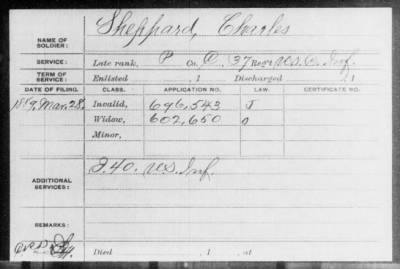 NAME OF SOLDIER: Sheppard, Charles
SERVICE: Late rank, P Co. D, 37 Reg't U.S.C. Inf.
TERM OF SERVICE: Enlisted , 1 Discharged , 1
DATE OF FILING. CLASS. APPLICATION NO. LAW. CERTIFICATE NO.
Mar. 28, Invalid, 696,543 J
Widow, 602,650
Minor,
ADDITIONAL SERVICES: J. 40. U.S. Inf.
REMARKS:
Died , 1 , at